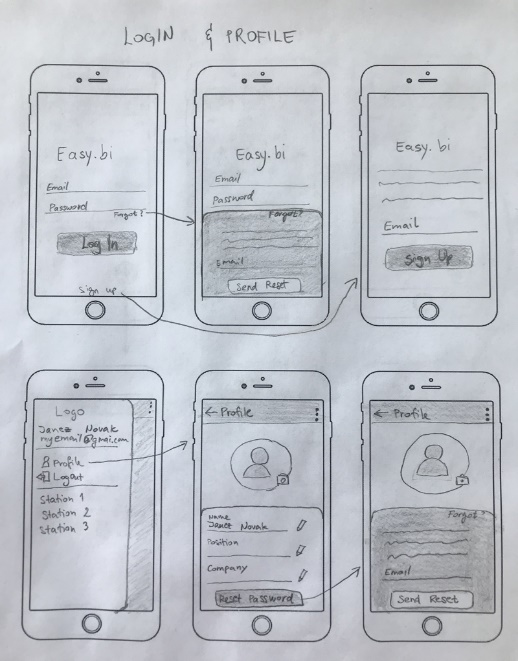 LOGIN & PROFILE
Easy.bi
Email
Password
Forgot?
Log In
Sign up
Easy.bi
Email
Password
Forgot?
Email
Send Reset
Easy.bi
Email
Sign Up
Logo
Janez Novak
myemail@gmai.com
Profile
Logout
Station 1
Station 2
Station 3
← Profile
Name
Janez Novak
Position
Company
Reset Password
← Profile
Forgot?
Email
Send Reset